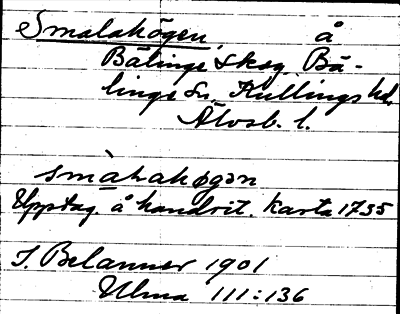 Smalahögen, å
Bälinge skog, Bä-
linge sn, Kullings hd,
Älvsb. l.
smàlahøgən
Uppdag. å handrit. karta 1735
J. Belanner 1901
Ulma 111:136